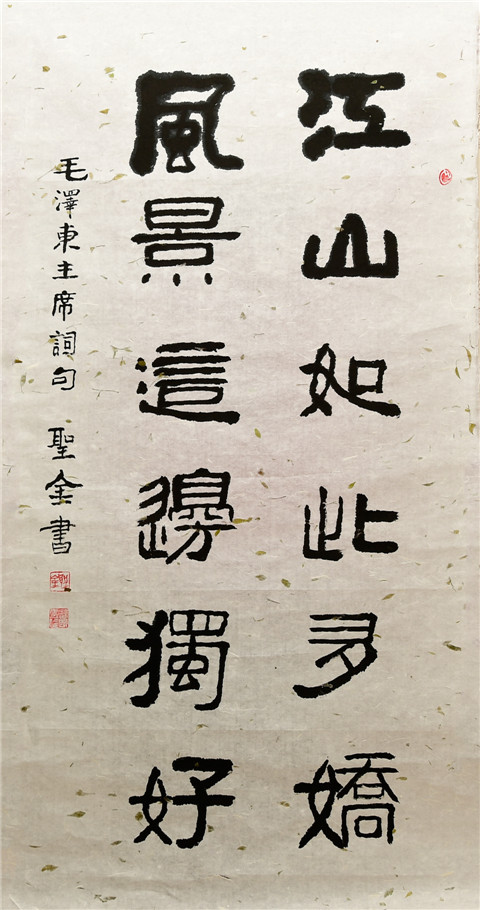 江山如此多嬌
風景這邊獨好
毛澤東主席詞句 聖金書